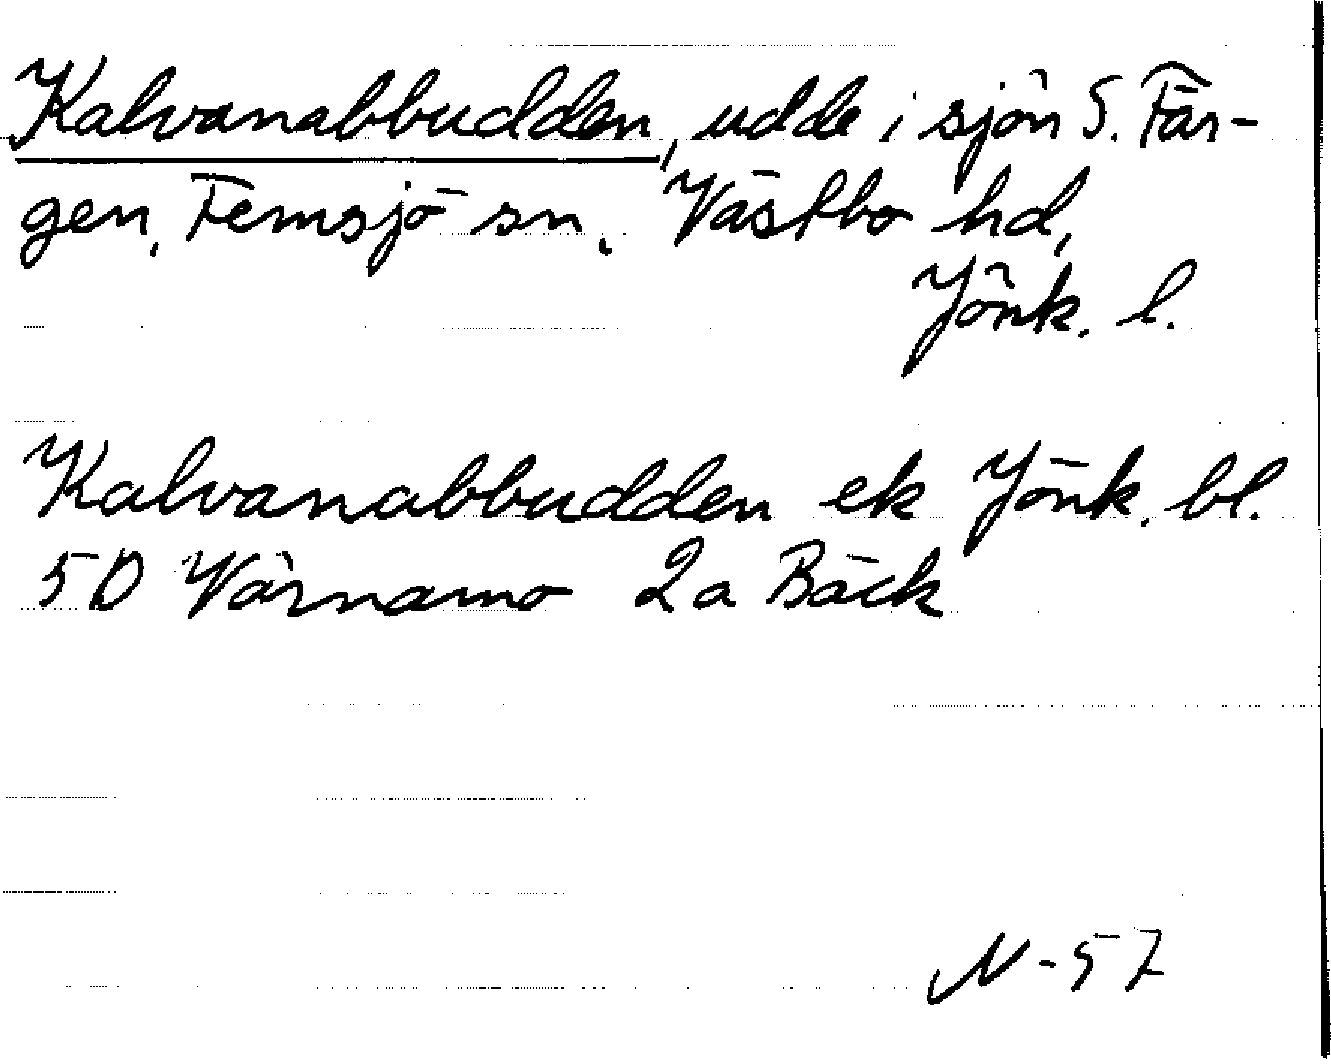 Kalvanabbudden, udde i sjön S. Fär-
gen, Femsjö sn, Västbo hd,
Jönk. l.
Kalvanabbudden ek Jönk. bl.
5D Värnamo 2a Bäck
N-57